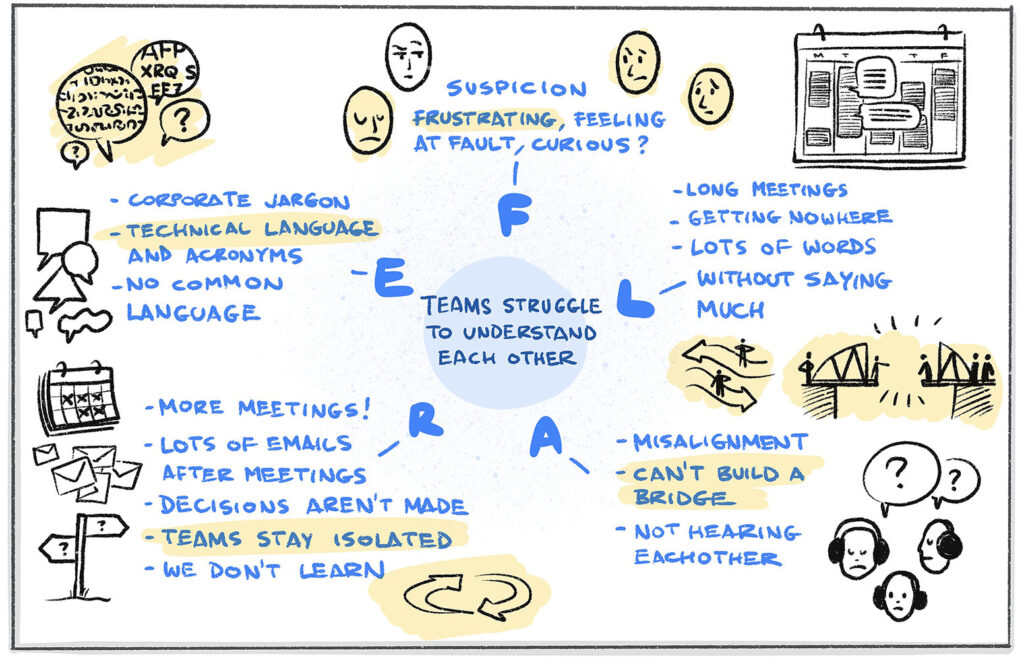 AFP
XRQ S
EF7
?
?
SUSPICION
FRUSTRATING, FEELING
AT FAULT, CURIOUS?
F
M T T F
- LONG MEETINGS
- GETTING NOWHERE
- LOTS OF WORDS
WITHOUT SAYING
MUCH
L
- CORPORATE JARGON
- TECHNICAL LANGUAGE
AND ACRONYMS
- NO COMMON
LANGUAGE
E
TEAMS STRUGGLE
TO UNDERSTAND
EACH OTHER
- MORE MEETINGS!
- LOTS OF EMAILS
AFTER MEETINGS
- DECISIONS AREN'T MADE
- TEAMS STAY ISOLATED
- WE DON'T LEARN
R
?
?
A
- MISALIGNMENT
- CAN'T BUILD A
BRIDGE
- NOT HEARING
EACHOTHER
?
?